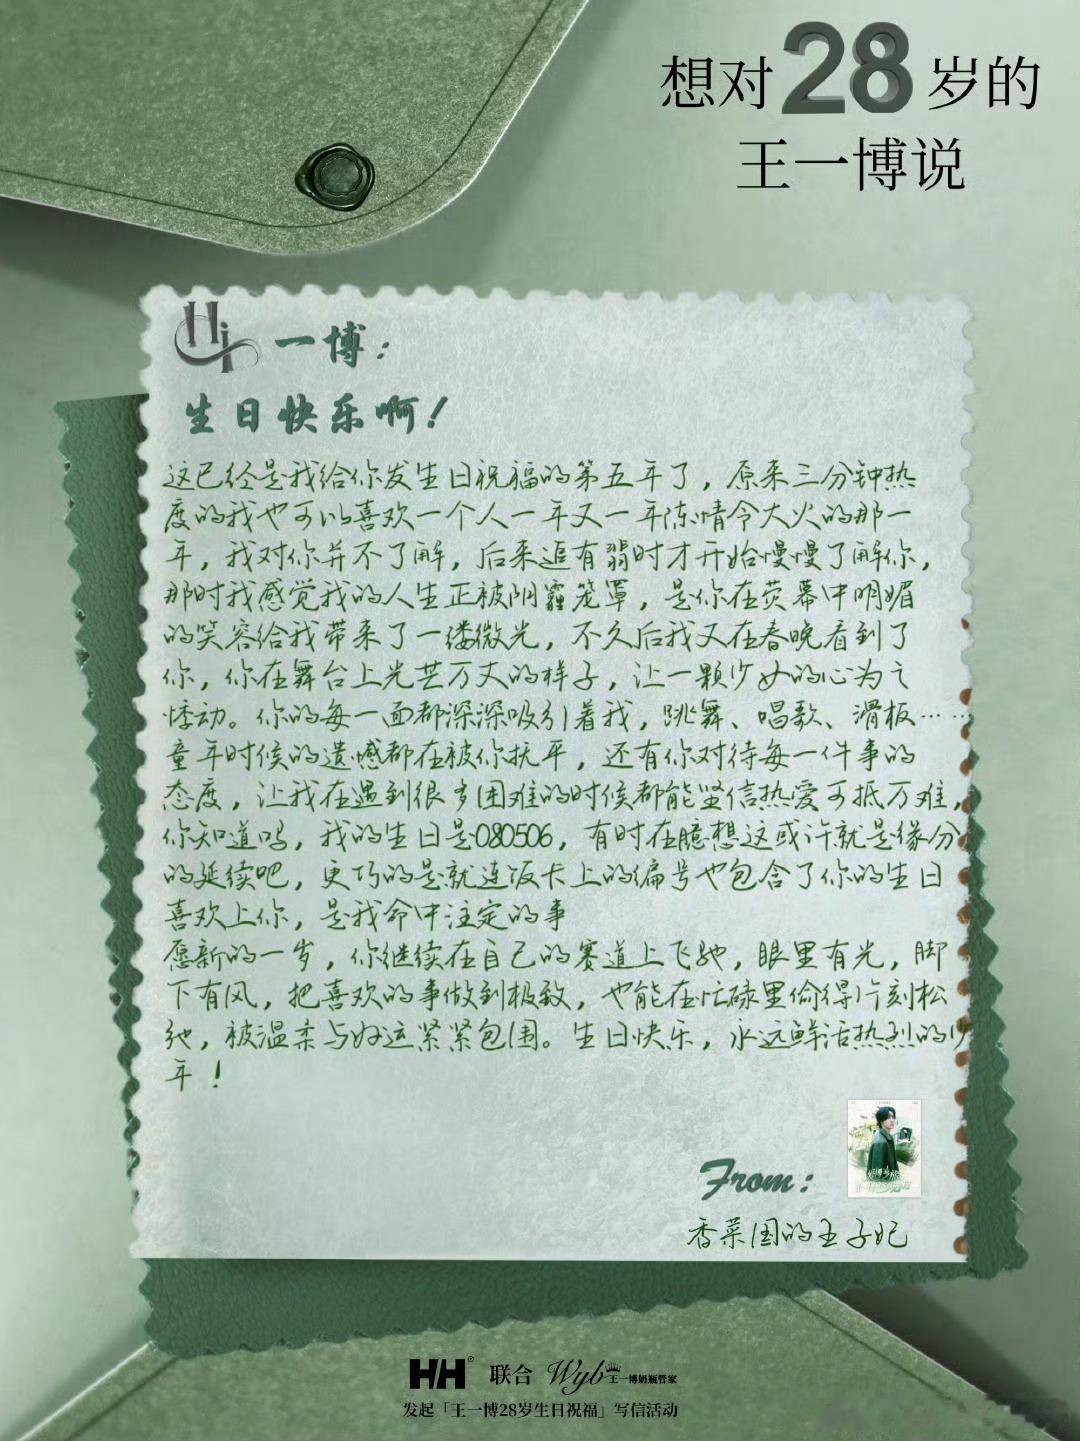 想对28岁的
王一博说
Hi 一博：
生日快乐啊！
这已经是我给你发生日祝福的第五年了，原来三分钟热
度的我也可以喜欢一个人一年又一年陈情令大火的那一
年，我对你并不了解，后来追有翡时才开始慢慢了解你，
那时我感觉我的人生正被阴霾笼罩，是你在荧幕中明媚
的笑容给我带来了一缕微光，不久后我又在春晚看到了
你，你在舞台上光芒万丈的样子，让一颗少女的心为之
悸动。你的每一面都深深吸引着我，跳舞、唱歌、滑板……
童年时候的遗憾都在被你抚平，还有你对待每一件事的
态度，让我在遇到很多困难的时候都能坚信热爱可抵万难，
你知道吗，我的生日是080506，有时在臆想这或许就是缘分
的延续吧，更巧的是就连饭卡上的编号也包含了你的生日
喜欢上你，是我命中注定的事
愿新的一岁，你继续在自己的赛道上飞驰，眼里有光，脚
下有风，把喜欢的事做到极致，也能在忙碌里偷得片刻松
弛，被温柔与好运紧紧包围。生日快乐，永远鲜活热烈的少
年！
From：
香菜国的王子妃
HH® 联合 Wyb 王一博奶瓶管家
发起「王一博28岁生日祝福」写信活动